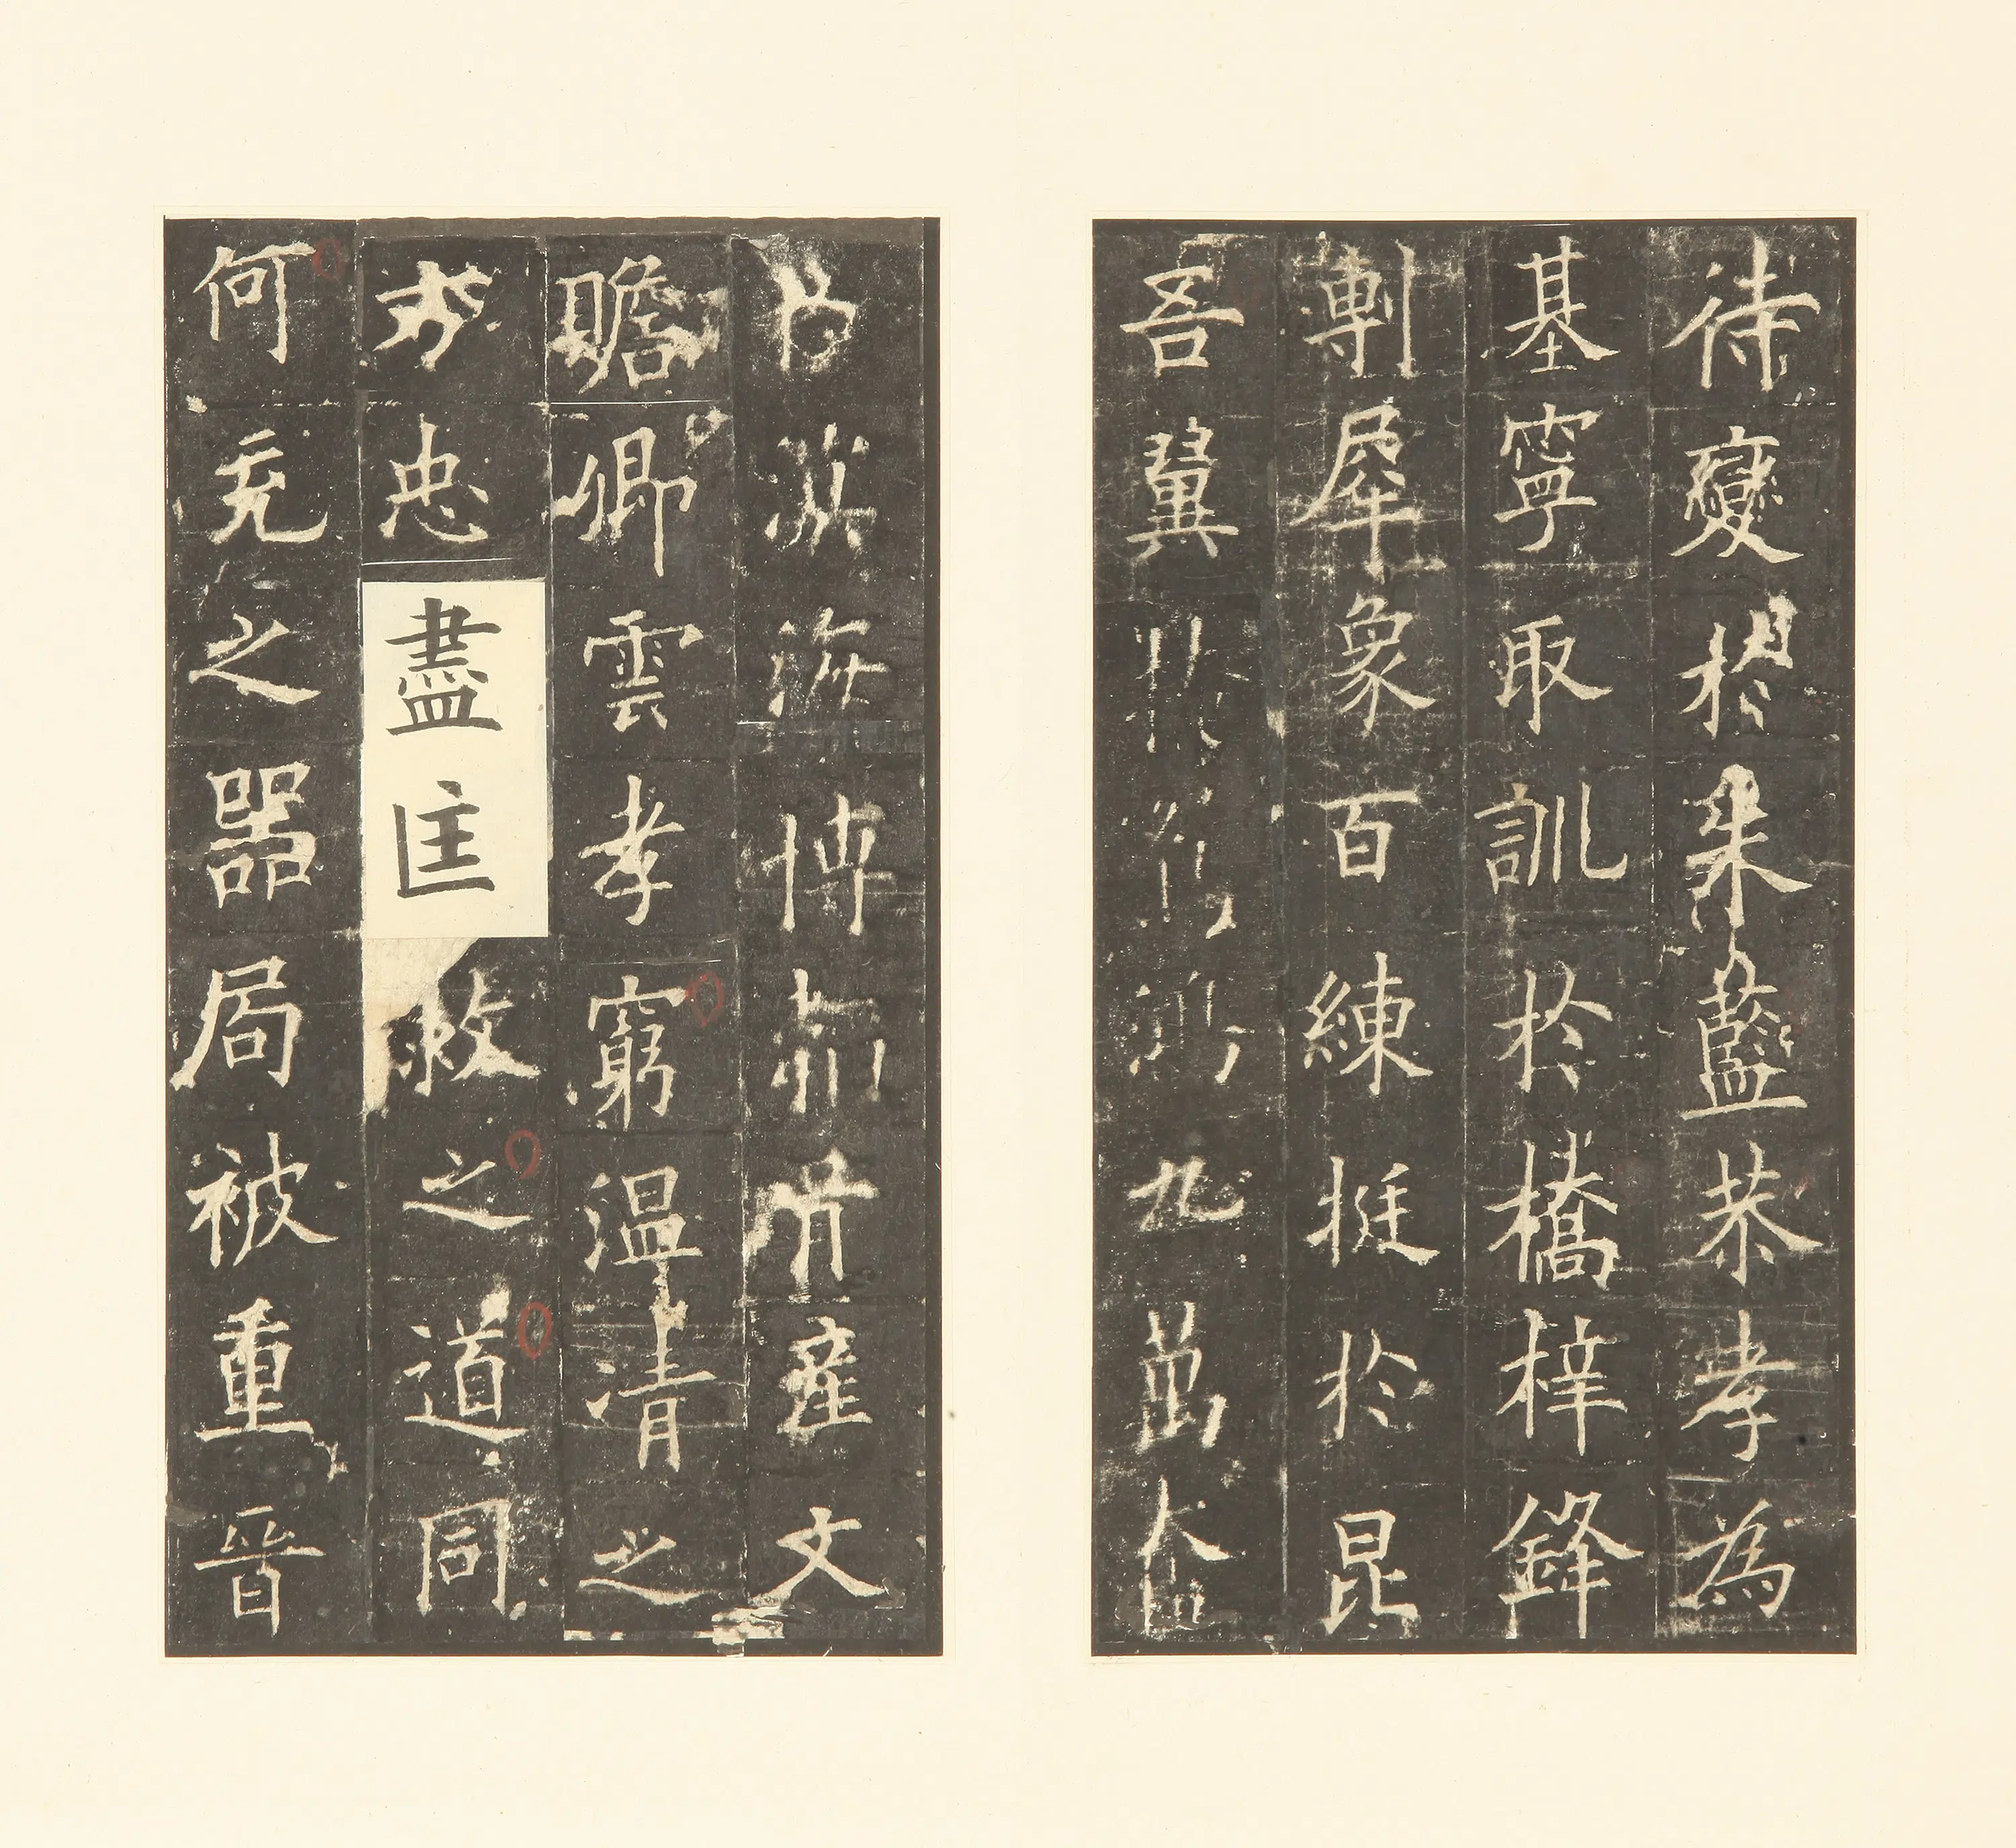 待變於朱藍恭孝為
基寧取訓於橋梓鋒
剸犀象百練挺於昆
吾翼九萬奮
於溟海博產文
瞻卿雲孝窮温清之
方忠盡匡救之道同
何充之器局被重晉